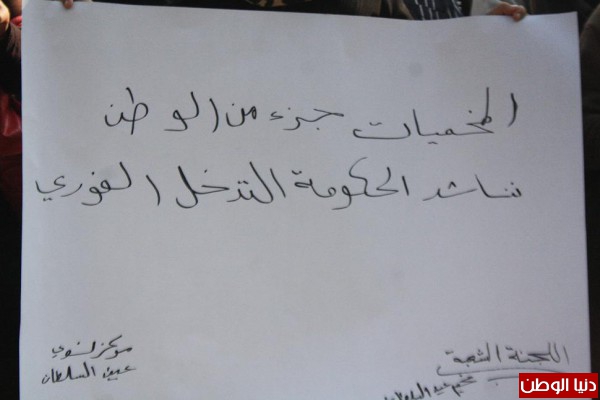 المخيمات جزء من الوطن
نناشد الحكومة التدخل الفوري
اللجنة الشعبية
مخيم عين السلطان
مركز نسوي
عين السلطان
دنيا الوطن